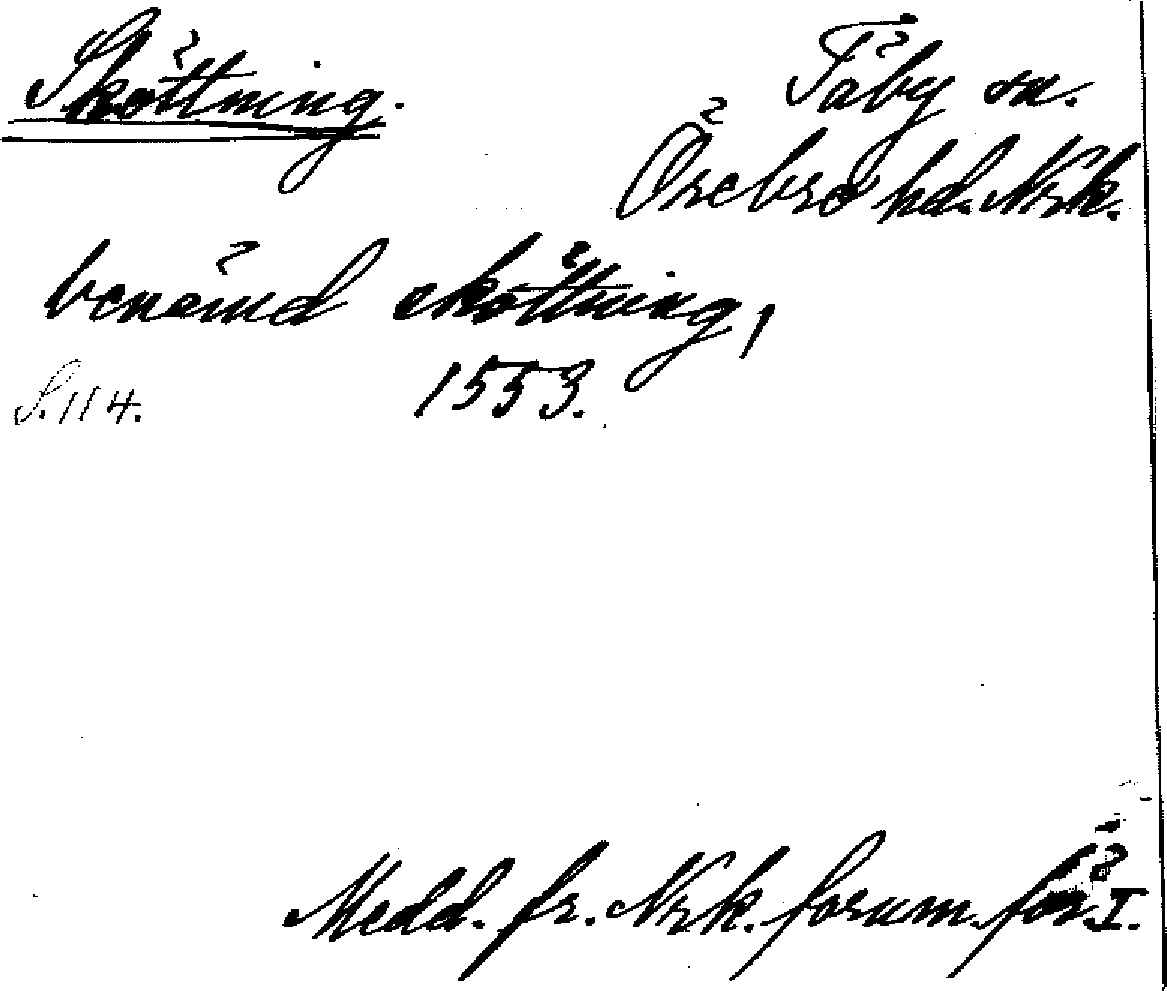 Sköttning.
Täby sn.
Örebro hd. Nrk.
benämd sköttning,
1553.
S. 114.
Medd. fr. Nrk. fornm. för. I.